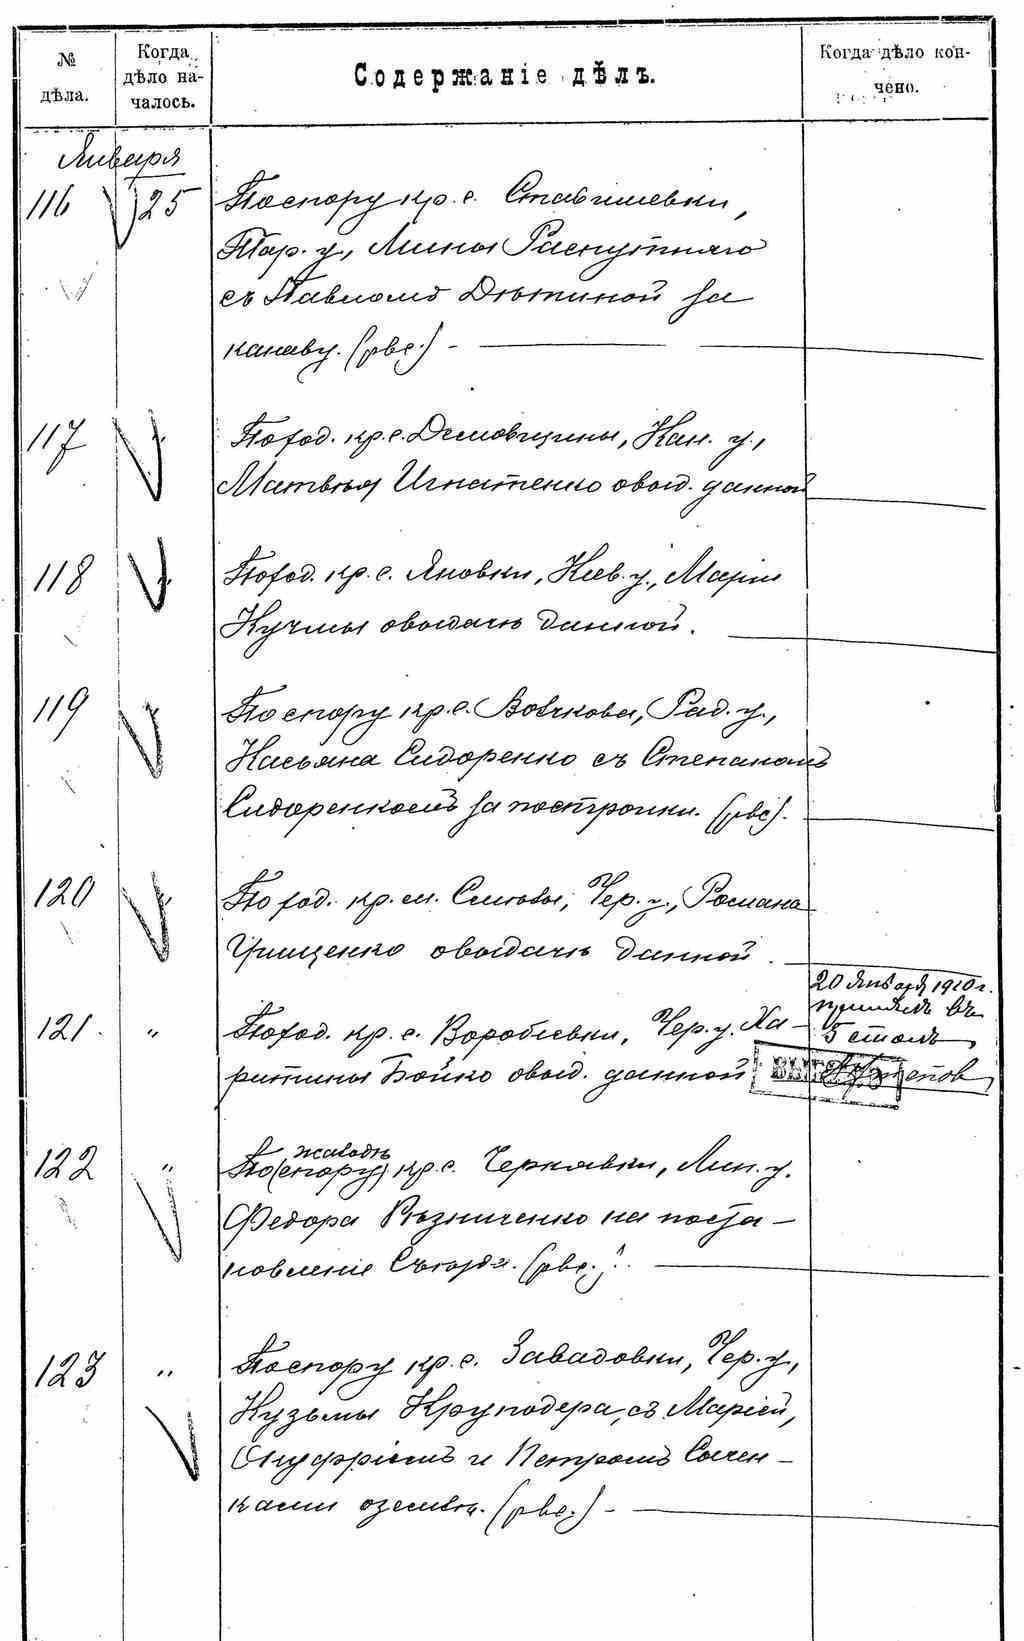 № дѣла.
Когда дѣло на-
чалось.
Содержаніе дѣлъ.
Когда дѣло кон-
чено.
Января
116 25 По спору кр. с. Ставишевки,
Тар. у., Мины Распутняго
съ Павломъ Дѣтиной за
канаву. (рвс.) -
117 По ход. кр. с. Демовщины, Кан. у.,
Матвѣя Игнатенко о выд. данной
118 По ход. кр. с. Яновки, Кіев. у., Маріи
Кучмы о выдачѣ данной.
119 По спору кр. с. Вовчкова, Рад. у.,
Касьяна Сидоренко съ Степаномъ
Сидоренкомъ за постройки. (рвс).
120 По ход. кр. м. Смѣлы, Чер. у., Романа
Грищенко о выдачѣ данной.
20 Января 1910 г.
принялъ въ
5 столъ
121. " По ход. кр. с. Воробіевки, Чер. у. Ха-
ритины Бойко о выд. данной
122 " По (спору) жалобѣ кр. с. Чернявки, Лип. у.
Федора Рѣзниченко на поста-
новленіе Съѣзда. (рвс.).
123 " По спору кр. с. Завадовки, Чер. у.,
Кузьмы Круподера, съ Маріей,
Онуфріемъ и Петромъ Сачен-
ками о землѣ. (рвс.) -